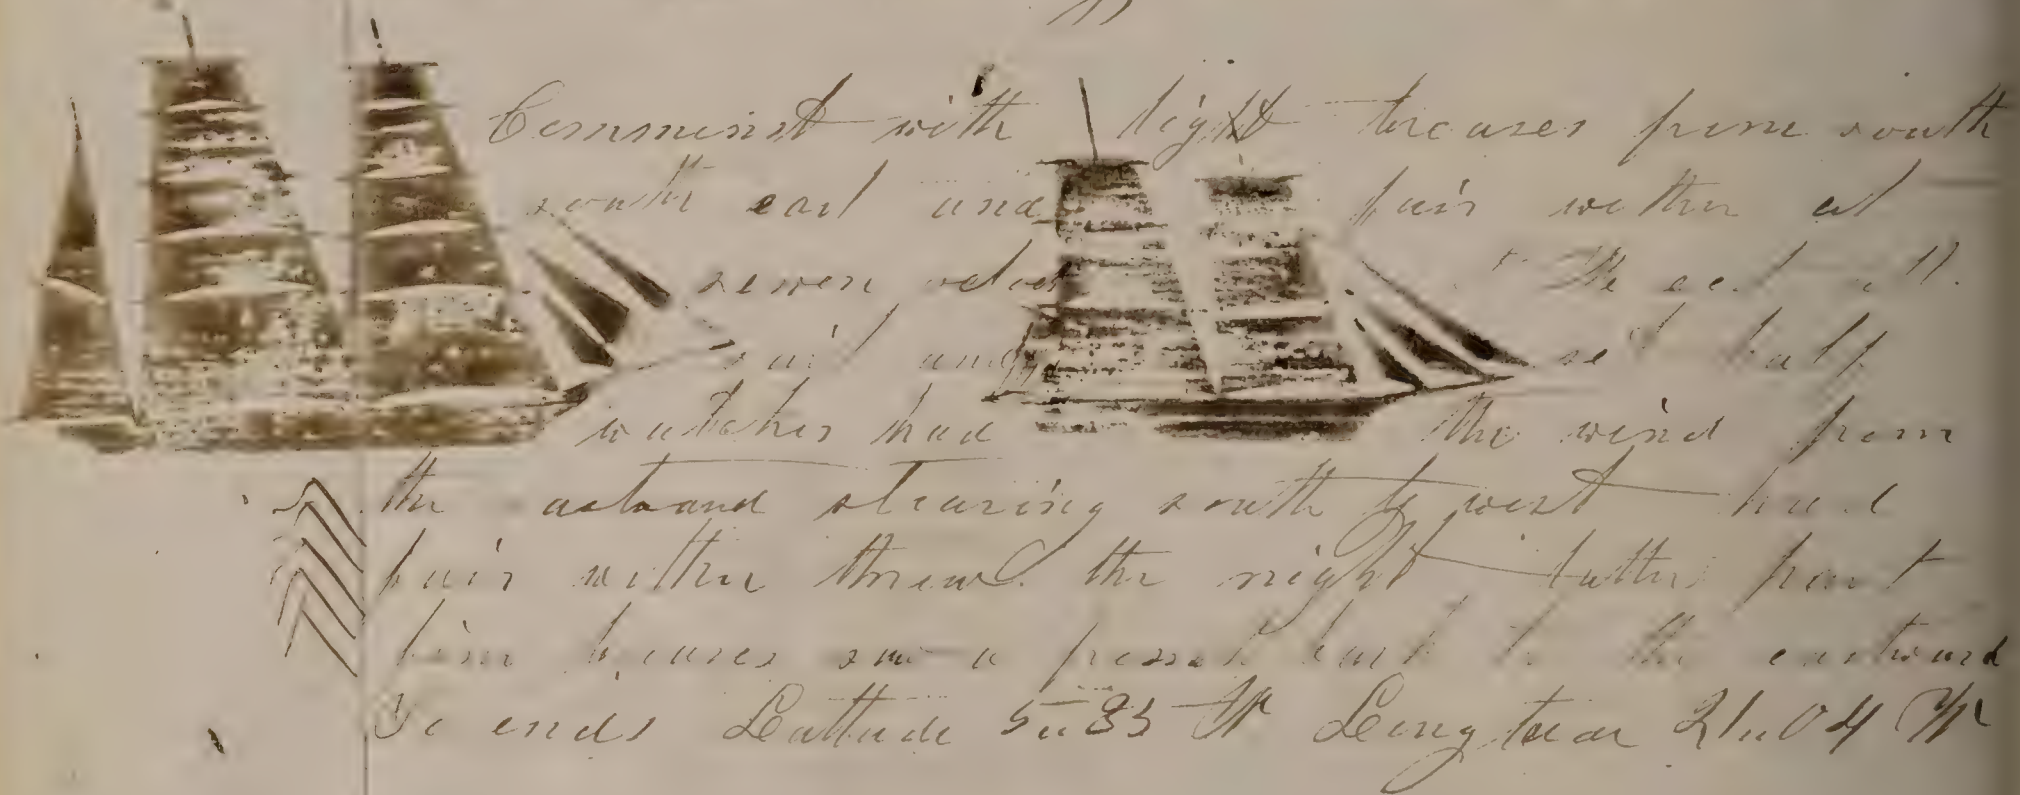 Comminst with light breases frome south
south east and fair wether at
seven oclock
sail and set half
watches had the wind from
the eastward stearing south by west had
fair wether threw the night latter part
firm breases saw a bark to the eastward
So ends Lattude 5 " 33 N Longtuar 21 " 04 W